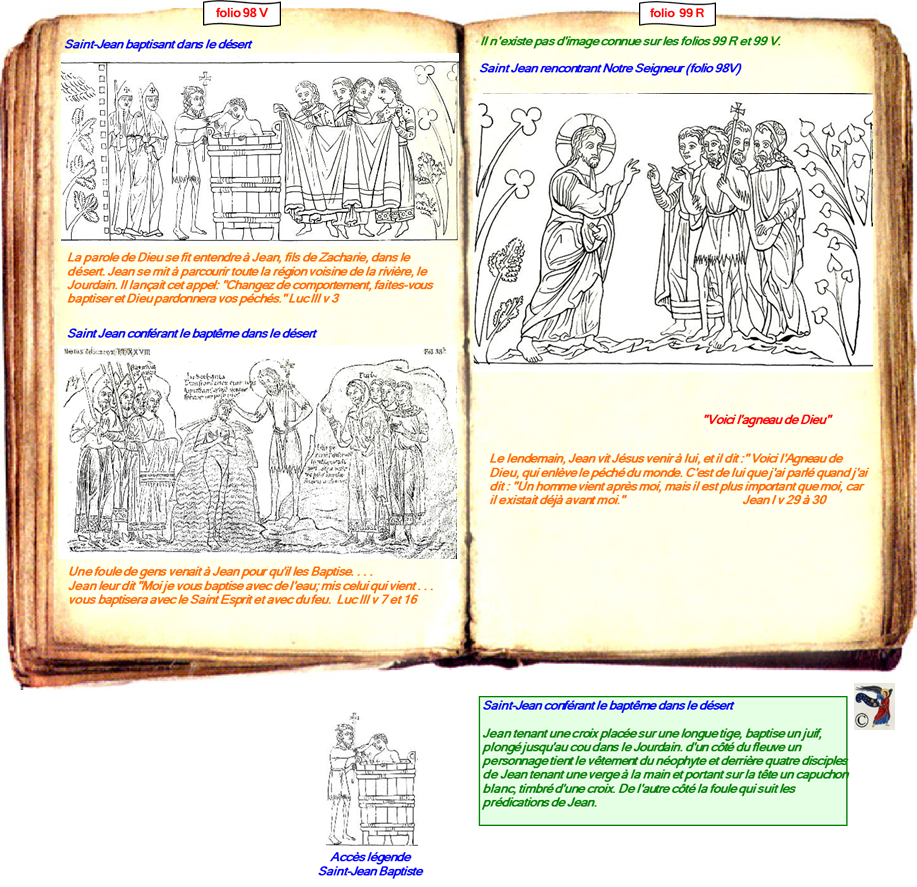 folio 98 V
Saint-Jean baptisant dans le désert
La parole de Dieu se fit entendre à Jean, fils de Zacharie, dans le
désert. Jean se mit à parcourir toute la région voisine de la rivière, le
Jourdain. Il lançait cet appel: "Changez de comportement, faites-vous
baptiser et Dieu pardonnera vos péchés." Luc III v 3
Saint Jean conférant le baptême dans le désert
Une foule de gens venait à Jean pour qu'il les Baptise. . . .
Jean leur dit "Moi je vous baptise avec de l'eau; mis celui qui vient . . .
vous baptisera avec le Saint Esprit et avec du feu. Luc III v 7 et 16
folio 99 R
Il n'existe pas d'image connue sur les folios 99 R et 99 V.
Saint Jean rencontrant Notre Seigneur (folio 98V)
"Voici l'agneau de Dieu"
Le lendemain, Jean vit Jésus venir à lui, et il dit :" Voici l'Agneau de
Dieu, qui enlève le péché du monde. C'est de lui que j'ai parlé quand j'ai
dit : "Un homme vient après moi, mais il est plus important que moi, car
il existait déjà avant moi." Jean I v 29 à 30
Saint-Jean conférant le baptême dans le désert
Jean tenant une croix placée sur une longue tige, baptise un juif,
plongé jusqu'au cou dans le Jourdain. d'un côté du fleuve un
personnage tient le vêtement du néophyte et derrière quatre disciples
de Jean tenant une verge à la main et portant sur la tête un capuchon
blanc, timbré d'une croix. De l'autre côté la foule qui suit les
prédications de Jean.
©
Accès légende
Saint-Jean Baptiste